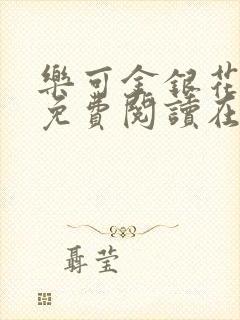 樂可金銀花
免費閱讀在
聶莹